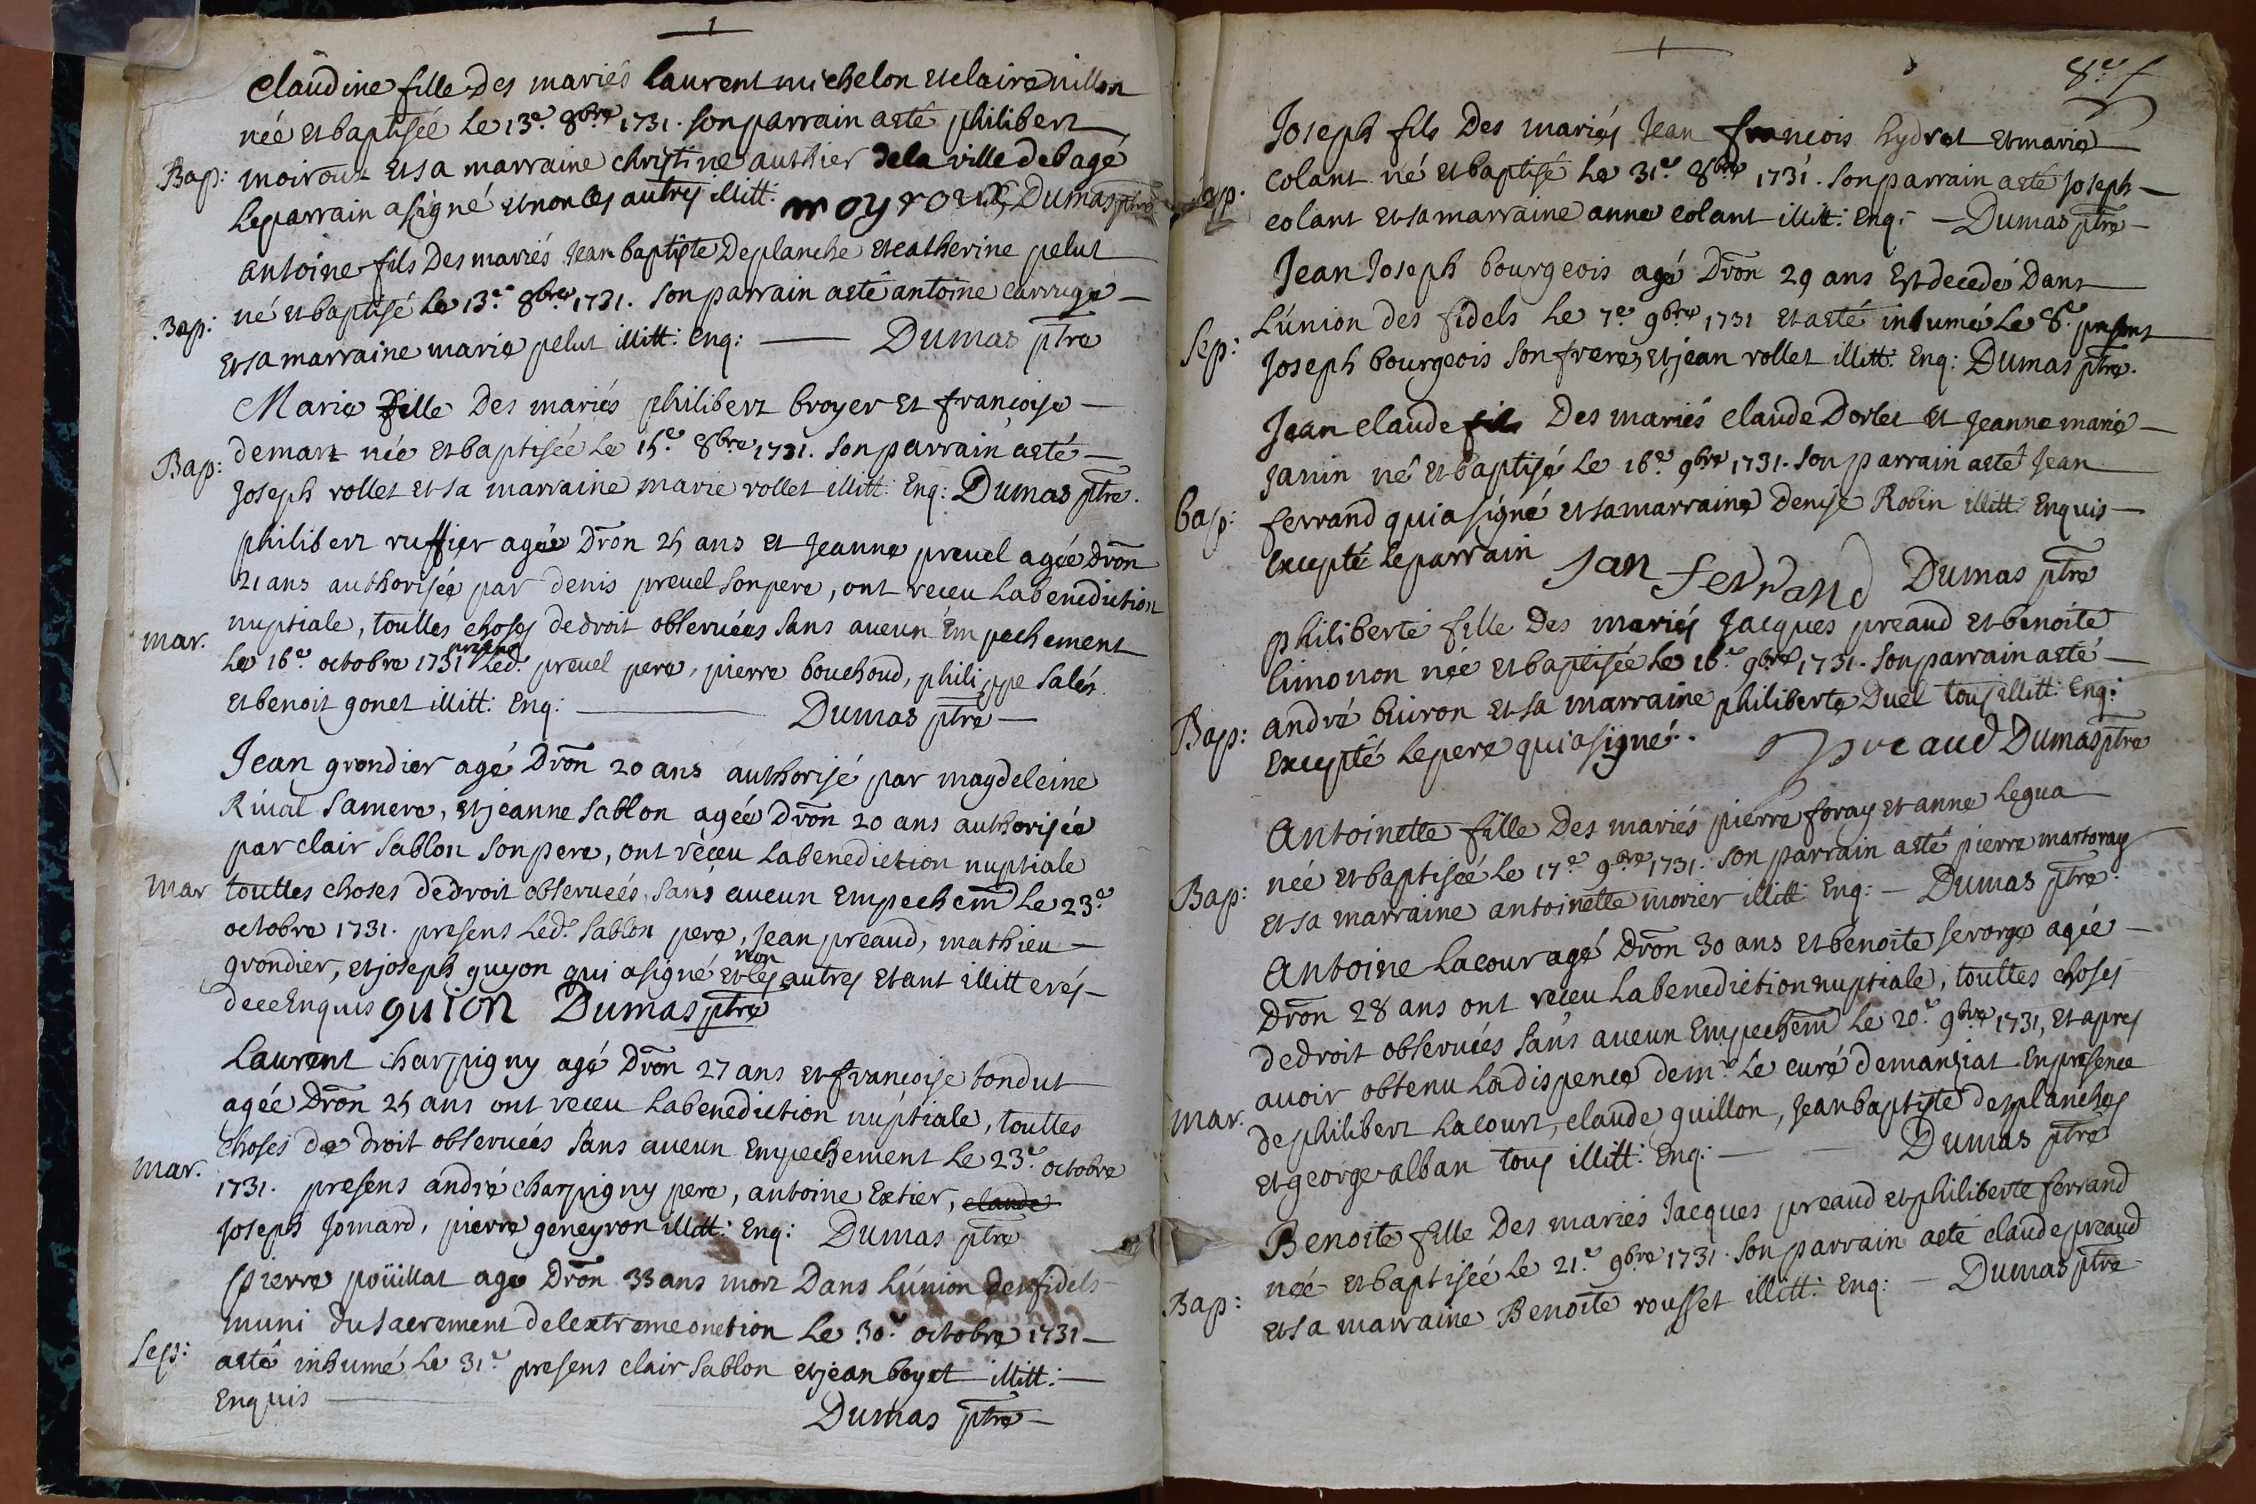 1
Claudine fille Des mariés laurent michelon et claire villon
née et baptisée le 13e. 8bre 1731. son parrain a eté philibert
Bap: moiroux et sa marraine christine authier de la ville de bagé
le parrain a signé et non les autres illitt. moyroux Dumas ptre
antoine fils Des mariés Jean baptiste Deplanche et catherine pelut
né et baptisé le 13e. 8bre 1731. son parrain a eté antoine carruge —
Bap: et sa marraine marie pelut illitt: Enq: — Dumas ptre
Marie fille Des mariés philibert broyer et francoise —
demart née et baptisée le 15e 8bre 1731. son parrain a eté —
Bap: Joseph rollet et sa marraine marie rollet illitt: Enq: Dumas ptre.
philibert ruffier agée Dron 25 ans et Jeanne preuel agée dron
21 ans authorisée par denis preuel son pere, ont receu la benediction
nuptiale, touttes choses de droit observées sans aucun Empechement
mar. le 16e octobre 1731 presens led. preuel pere, pierre bouchoud, philippe Salés
et benoit gonet illitt: Enq: — Dumas ptre —
Jean grondier agé Dron 20 ans authorisé par magdeleine
Rival sa mere, et jeanne Sablon agée Dron 20 ans authorisée
par clair Sablon son pere, ont receu la benediction nuptiale
mar touttes choses de droit observées, sans aucun Empechem le 23e
octobre 1731. presens led. Sablon pere, Jean preaud, mathieu —
grondier, et joseph guyon qui a signé et non les autres Etant illitterés —
de ce Enquis guion Dumas ptre
Laurent charpigny agé Dron 27 ans et francoise tondut
agée Dron 25 ans ont receu la benediction nuptiale, touttes
choses de droit observées sans aucun Empechement le 23e octobre
mar. 1731. presens andré charpigny pere, antoine Extier, claude
Joseph Jomard, pierre geneyron illitt: Enq: Dumas ptre
Pierre poüillat agé Dron 33 ans mort Dans l'union des fidels
muni du sacrement de l extreme onction le 30e octobre 1731 —
Sep: a eté inhumé le 31e presens clair Sablon et jean boyet illitt: —
Enquis —
Dumas ptre —
8e f
Joseph fils Des mariés Jean francois hydret et marie
colant né et baptisé le 31e 8bre 1731. son parrain a eté Joseph —
Bap. colant et sa marraine anne colant illitt: Enq: — Dumas ptre —
Jean Joseph bourgeois agé Dron 29 ans Est decedé Dans
l'union des fidels le 7e 9bre 1731 et a eté inhumé le 8e. present
Sep: Joseph bourgeois son frere, et jean rollet illitt: Enq: Dumas ptre.
Jean claude fils Des mariés claude Dorlet et Jeanne marie —
Janin né et baptisé le 16e 9bre 1731. son parrain a eté Jean
bap: ferrand qui a signé et sa marraine Denise Robin illitt Enquis —
Excepté le parrain Jan ferrand Dumas ptre
philiberte fille Des mariés Jacques preaud et benoite
limonon née et baptisée le 16e 9bre 1731. son parrain a eté —
Bap: andré buiron et sa marraine philiberte Duel tous illitt: Enq:
Excepté le pere qui a signé. preaud Dumas ptre
Antoinette fille Des mariés pierre foray et anne legua
née et baptisée le 17e 9bre 1731. son parrain a eté pierre martoray
Bap: et sa marraine antoinette morier illitt: Enq: — Dumas ptre.
Antoine lacour agé Dron 30 ans et benoite serorge agée —
Dron 28 ans ont receu la benediction nuptiale, touttes choses
de droit observées sans aucun Empechem le 20e 9bre 1731, et apres
avoir obtenu la dispence de mr. le curé de manziat En presence
mar. de philibert lacourt, claude guillon, Jean baptiste desplanches
et george alban tous illitt: Enq: — Dumas ptre
Benoite fille Des mariés Jacques preaud et philiberte ferrand
née et baptisée le 21e 9bre 1731. son parrain a eté claude preaud
Bap: et sa marraine Benoite rousset illitt: Enq: — Dumas ptre